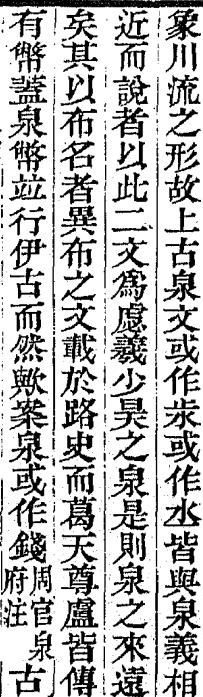 象川流之形故上古泉文或作𣱵或作水皆與泉義相
近而說者以此二文爲虙羲少昊之泉是則泉之來遠
矣其以布名者異布之文載於路史而葛天尊盧皆傳
有幣蓋泉幣竝行伊古而然歟案泉或作錢周官泉府注古